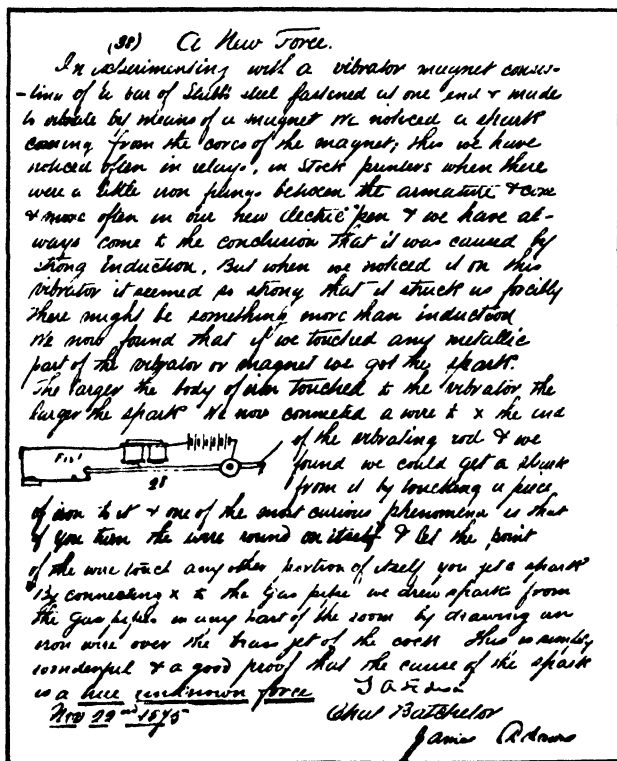 (38) A New Force.
In experimenting with a vibrator magnet consis-
-ting of a bar of Stubb's steel fastened at one end & made
to vibrate by means of a magnet we noticed a spark
coming from the cores of the magnet; this we have
noticed often in relays, in Stock printers when there
were a little iron filings between the armature & core
& more often in our new electric pen & we have al-
ways come to the conclusion that it was caused by
strong induction. But when we noticed it on this
vibrator it seemed so strong that it struck us forcibly
there might be something more than induction
We now found that if we touched any metallic
part of the vibrator or magnet we got the spark.
The larger the body of iron touched to the vibrator the
larger the spark We now connected a wire to x the end
of the vibrating rod & we
Fig 1
found we could get a spark
28
from it by touching a piece
of iron to it & one of the most curious phenomena is that
if you turn the wire round on itself & let the point
of the wire touch any other portion of itself you get a spark
By connecting x to the Gas pipe we drew sparks from
the Gas pipes in any part of the room by drawing an
iron wire over the brass jet of the cock This is simply
wonderful & a good proof that the cause of the spark
is a unknown force
Nov 22nd 1875
T A Edison
Chas Batchelor
James Adams